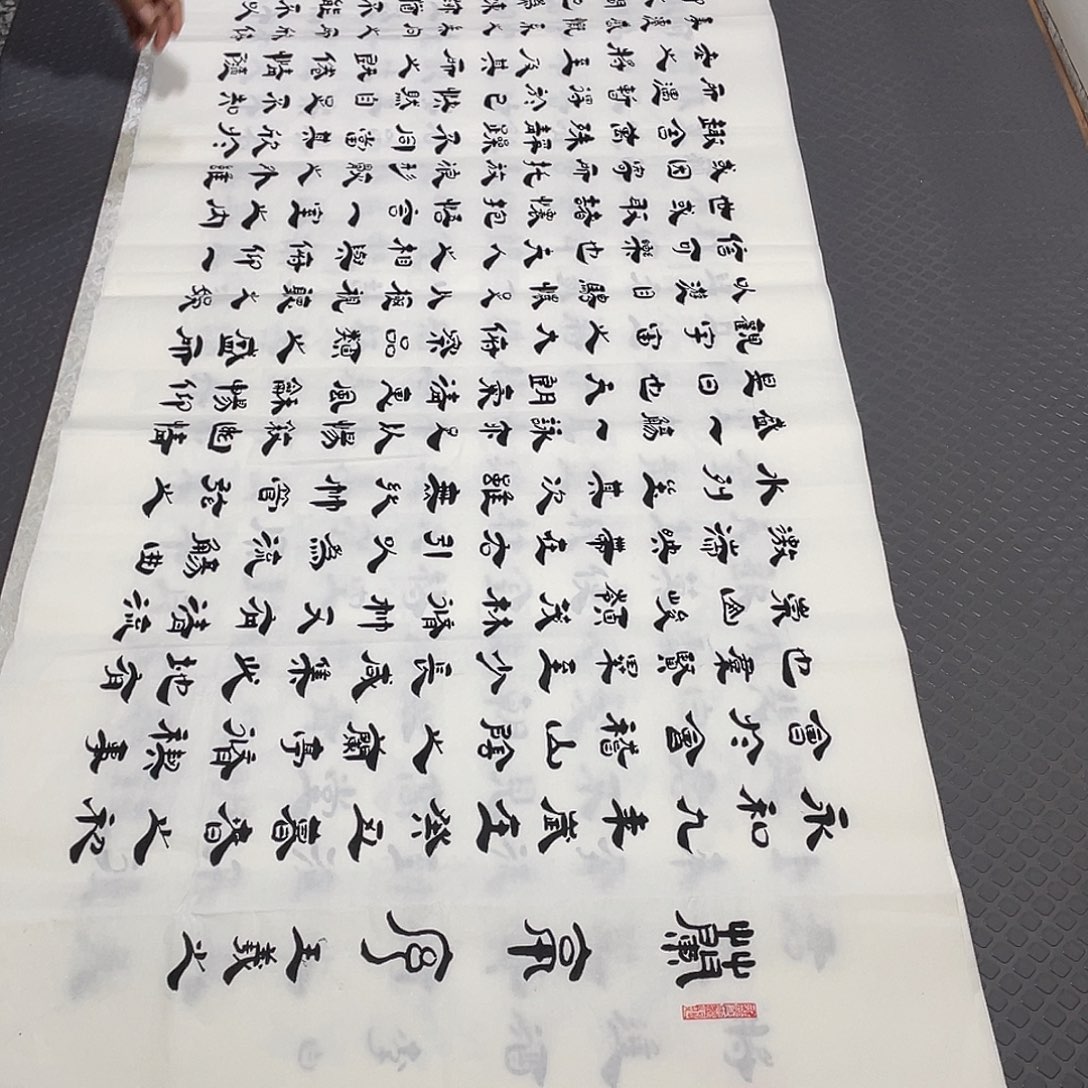 蘭亭序 王羲之
永和九年歲在癸丑暮春之初
會於會稽山陰之蘭亭脩禊事
也羣賢畢至少長咸集此地有
崇山峻領茂林脩竹又有清流
激湍映帶左右引以為流觴曲
水列坐其次雖無絲竹管弦之
盛一觴一詠亦足以暢敘幽情
是日也天朗氣清惠風龢暢仰
觀宇宙之大俯察品類之盛所
以遊目騁懷足以極視聽之娛
信可樂也夫人之相與俯仰一
世或取諸懷抱悟言一室之內
或因寄所托放浪形骸之外雖
趣舍萬殊靜躁不同當其欣於
所遇暫得於己快然自足不知
老之將至及其所之既惓情隨
事遷感慨係之矣向之所欣俛